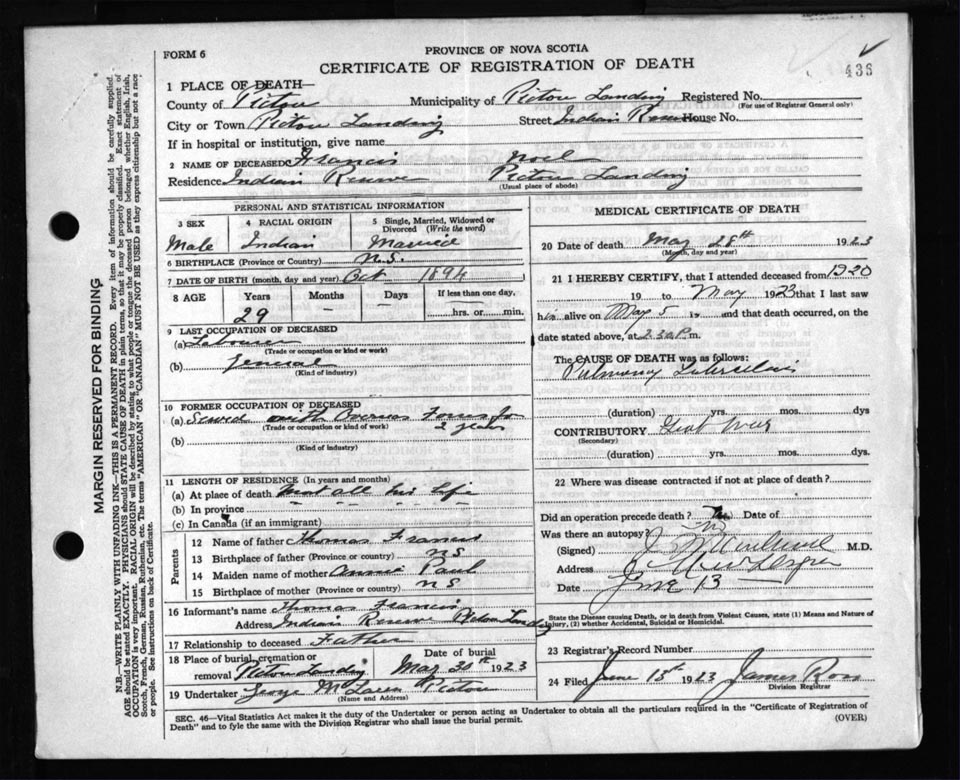 436
FORM 6
PROVINCE OF NOVA SCOTIA
CERTIFICATE OF REGISTRATION OF DEATH
1 PLACE OF DEATH—
County of Pictou Municipality of Pictou Landing Registered No.
(For use of Registrar General only)
City or Town Pictou Landing Street Indian Reserve House No.
If in hospital or institution, give name
2 NAME OF DECEASED Francis Noel
Residence Indian Reserve Pictou Landing
(Usual place of abode)
PERSONAL AND STATISTICAL INFORMATION
3 SEX 4 RACIAL ORIGIN 5 Single, Married, Widowed or Divorced (Write the word)
Male Indian Married
6 BIRTHPLACE (Province or Country) N.S.
7 DATE OF BIRTH (month, day and year) Oct 1894
8 AGE Years Months Days If less than one day,
29 – – hrs. or min.
9 LAST OCCUPATION OF DECEASED
(a) Labourer
(Trade or occupation or kind of work)
(b) General
(Kind of industry)
10 FORMER OCCUPATION OF DECEASED
(a) Served with Overseas Forces for
(Trade or occupation or kind of work) 2 years
(b)
(Kind of industry)
11 LENGTH OF RESIDENCE (In years and months)
(a) At place of death most all his life
(b) In province " " " "
(c) In Canada (if an immigrant)
Parents
12 Name of father Thomas Francis
13 Birthplace of father (Province or country) NS
14 Maiden name of mother Annie Paul
15 Birthplace of mother (Province or country) NS
16 Informant's name Thomas Francis
Address Indian Reserve Pictou Landing
17 Relationship to deceased Father
18 Place of burial, cremation or removal Pictou Landing Date of burial May 30th 1923
19 Undertaker George McLaren Pictou
(Name and Address)
MEDICAL CERTIFICATE OF DEATH
20 Date of death May 28th 1923
(Month, day and year)
21 I HEREBY CERTIFY, that I attended deceased from 1920
19 to May 1923 that I last saw
him alive on May 5 19 and that death occurred, on
date stated above, at 2.30 P. m.
The CAUSE OF DEATH was as follows:
Pulmonary Tuberculosis
(duration) yrs. mos. dys
CONTRIBUTORY Great War
(Secondary)
(duration) yrs. mos. dys.
22 Where was disease contracted if not at place of death?
Did an operation precede death? No Date of
Was there an autopsy? No
(Signed) M.D.
Address New Glasgow
Date June 13
State the Disease causing Death, or in death from Violent Causes, state (1) Means and Nature of
Injury, (2) whether Accidental, Suicidal or Homicidal.
23 Registrar's Record Number
24 Filed June 15th 1923 James Ross
Division Registrar
SEC. 46—Vital Statistics Act makes it the duty of the Undertaker or person acting as Undertaker to obtain all the particulars required in the "Certificate of Registration of
Death" and to fyle the same with the Division Registrar who shall issue the burial permit.
(OVER)
MARGIN RESERVED FOR BINDING
N.B.—WRITE PLAINLY WITH UNFADING INK—THIS IS A PERMANENT RECORD. Every item of information should be carefully supplied.
AGE should be stated EXACTLY. PHYSICIANS should STATE CAUSE OF DEATH in plain terms, so that it may be properly classified. Exact statement of
OCCUPATION is very important. RACIAL ORIGIN will be described by stating to what people or tongue the deceased person belonged, whether English, Irish,
Scotch, French, German, Russian, Ruthenian, etc. The terms "AMERICAN" or "CANADIAN" MUST NOT BE USED as they express citizenship but not a race
or people. See instructions on back of Certificate.